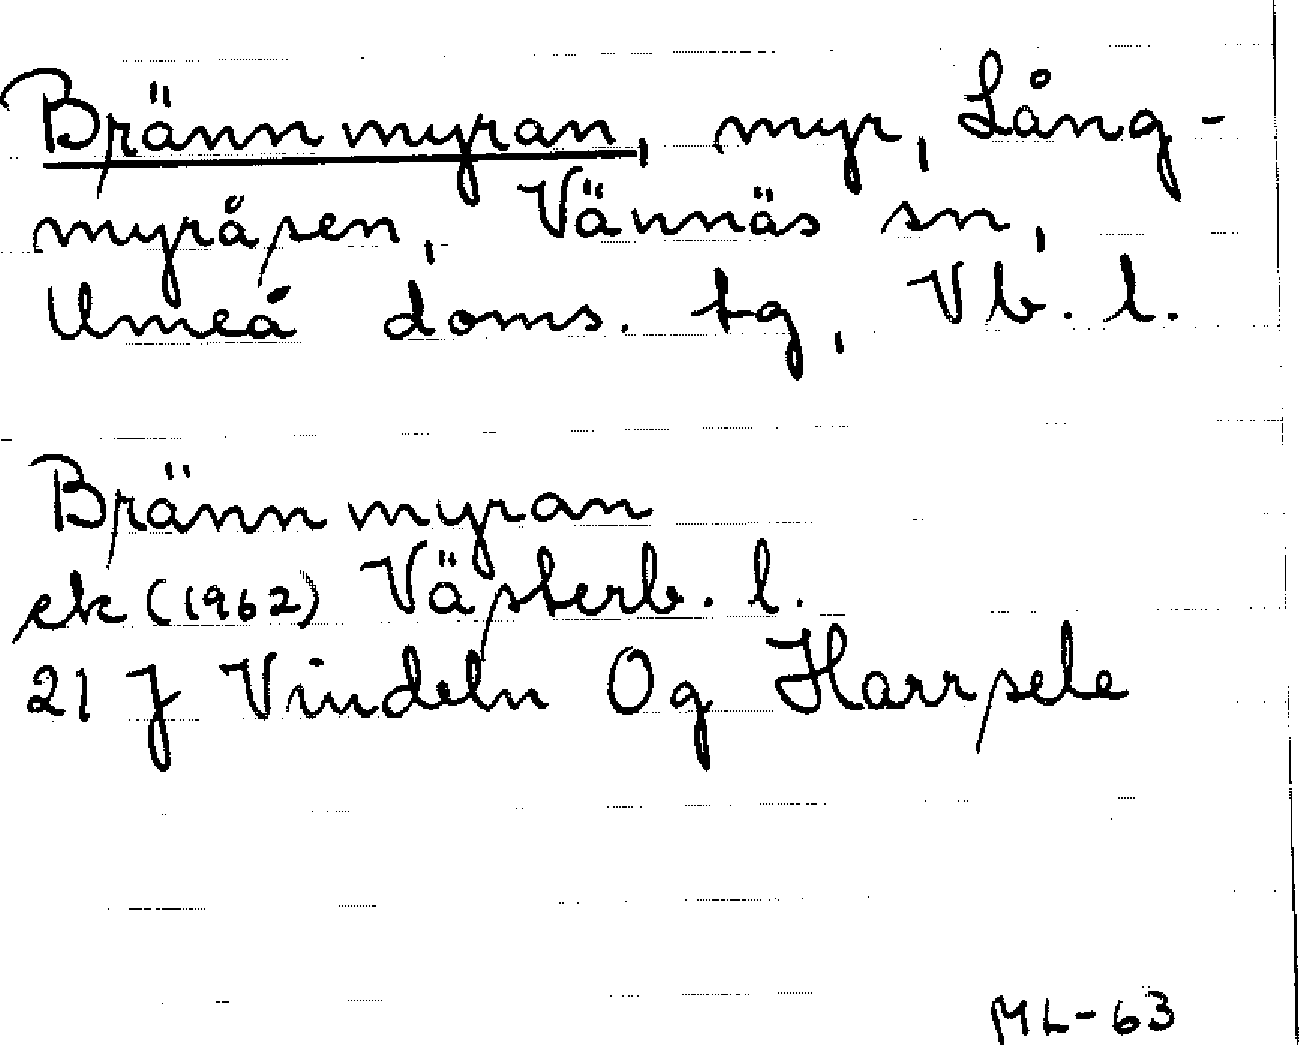 Brännmyran, myr, Lång-
myråsen, Vännäs sn,
Umeå doms. tg, Vb. l.
Brännmyran
ek (1962) Västerb. l.
21 J Vindeln Og Harrsele
ML-63